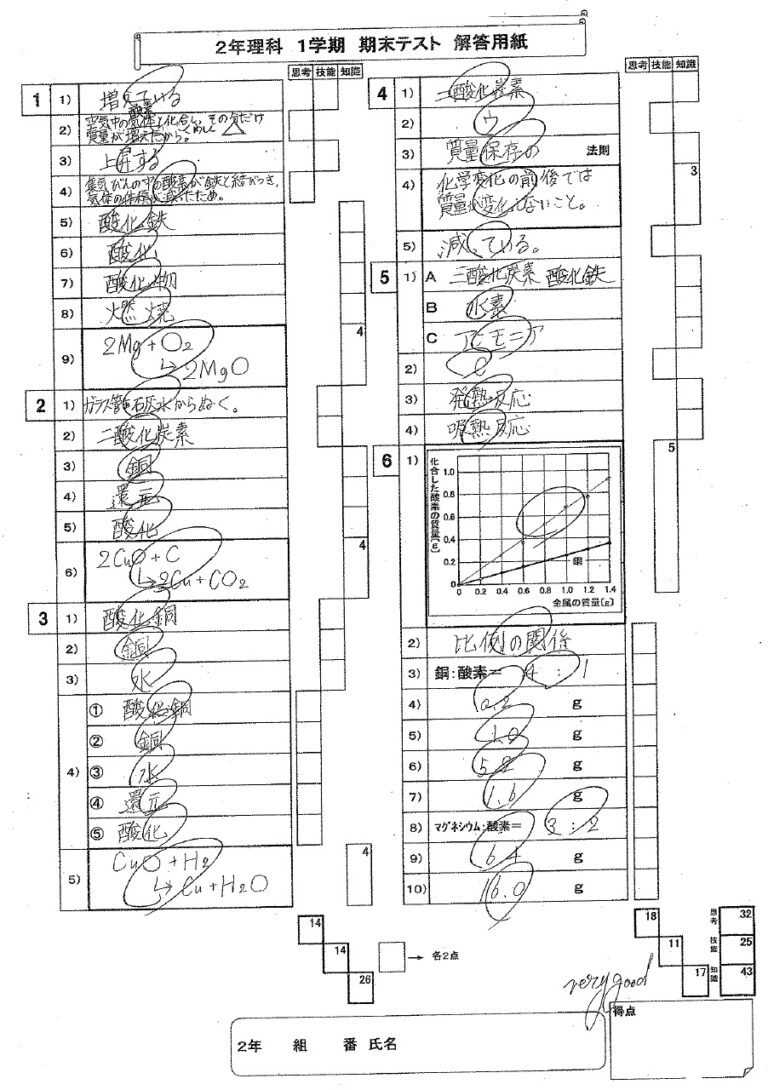 2年理科 1学期 期末テスト 解答用紙
思考 技能 知識
1
1) 増えている
2) 空気中の気体と化合し、その分だけ
酸素
質量が増えたから。
3) 上昇する
4) 集気びんの中の酸素が鉄と結びつき、
気体の体積が減ったため。
5) 酸化鉄
6) 酸化
7) 酸化物
8) 燃焼
4
9) 2Mg + O2
↳ 2MgO
2
1) ガラス管を石灰水からぬく。
2) 二酸化炭素
3) 銅
4) 還元
5) 酸化
4
6) 2CuO + C
↳ 2Cu + CO2
3
1) 酸化銅
2) 銅
3) 水
4)
① 酸化銅
② 銅
③ 水
④ 還元
⑤ 酸化
4
5) CuO + H2
↳ Cu + H2O
14
14
26
→ 各2点
思考 技能 知識
4
1) 二酸化炭素
2) ウ
3) 質量保存の 法則
3
4) 化学変化の前後では
質量が変化しないこと。
5) 減っている。
5
1) A 二酸化炭素 酸化鉄
B 水素
C アンモニア
2) C
3) 発熱反応
4) 吸熱反応
6
5
1)
化合した酸素の質量[g]
1.0
0.8
0.6
0.4
0.2
0 0.2 0.4 0.6 0.8 1.0 1.2 1.4
銅
金属の質量[g]
2) 比例の関係
3) 銅:酸素= 4 : 1
4) 0.2 g
5) 1.0 g
6) 5.2 g
7) 1.6 g
8) マグネシウム:酸素= 3 : 2
9) 6.4 g
10) 16.0 g
18
11
17
思考 32
技能 25
知識 43
very good
得点
2年 組 番 氏名